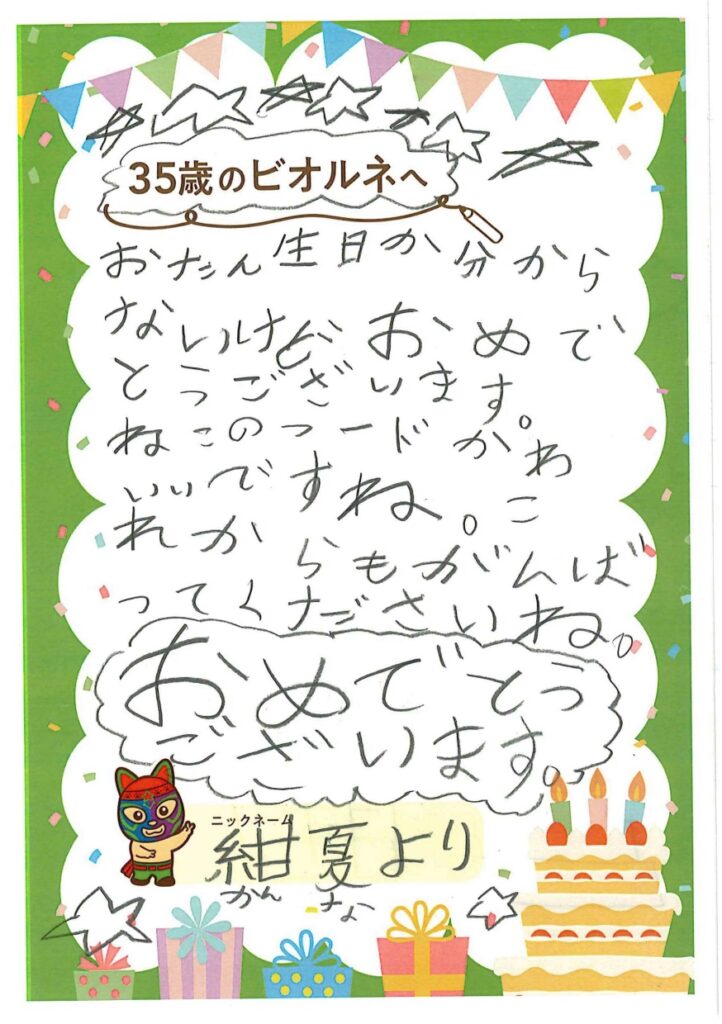 35歳のビオルネへ
おたん生日か分から
ないけどおめで
とうございます。
ねこのフードかわ
いいですね。こ
れからもがんば
ってくださいね。
おめでとう
ございます。
ニックネーム
紺夏より
かんな